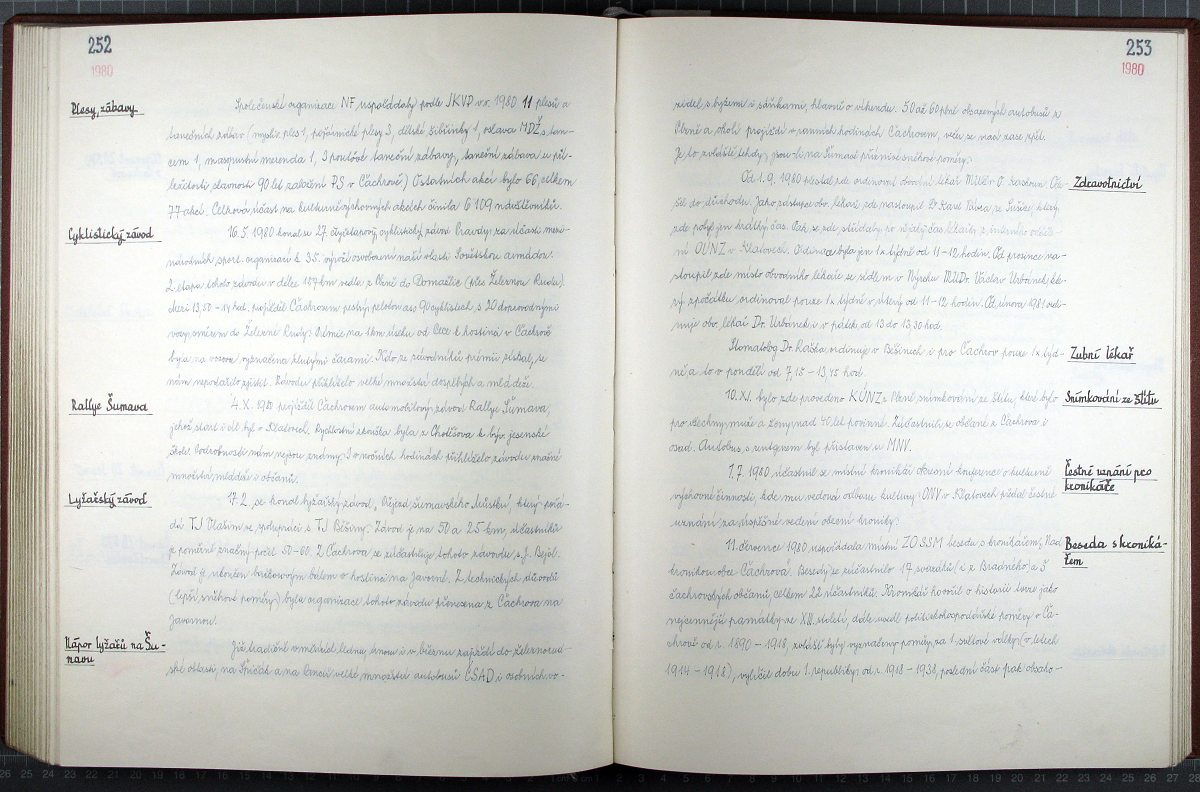 252
1980
Plesy, zábavy
Společenské organizace NF uspořádaly podle JKVP v r. 1980 11 plesů a
tanečních zábav (mysliv. ples 1, požárnické plesy 3, dětské šibřinky 1, oslava MDŽ s tan-
cem 1, maškarní merenda 1, 3 pouťové taneční zábavy, taneční zábava u pří-
ležitosti slavnosti 90 let založení PS v Čachrově) Ostatních akcí bylo 66, celkem
77 akcí. Celková účast na kulturně výchovných akcích činila 6 109 návštěvníků.
Cyklistický závod
16. 5. 1980 konal se 27. čtyřetapový cyklistický závod Pravdy za účasti mezi-
národních sport. organizací k 35. výročí osvobození naší vlasti Sovětskou armádou.
2. etapa tohoto závodu v délce 187 km vedla z Plzně do Domažlic (přes Železnou Rudu).
Mezi 13,50 – 14 hod. projížděl Čachrovem pestrý peloton asi 90 cyklistů s 20 doprovodnými
vozy směrem do Železné Rudy. Odměna na 1 km úseku od Čece k hostinci v Čachrově
byla na vozovce vyznačena žlutými čarami. Kdo ze závodníků prémii získal, se
nám nepodařilo zjistit. Závodu přihlíželo velké množství dospělých a mládeže.
Rallye Šumava
4. X. 1980 projížděl Čachrovem automobilový závod Rallye Šumava,
jehož start i cíl byl v Klatovech. Rychlostní zkouška byla z Chotěšova k býv. jesenské
škole. Podrobnosti nám nejsou známy. I v nočních hodinách přihlíželo závodu značné
množství mládeže i občanů.
Lyžařský závod
17. 2. se konal lyžařský závod „Přejezd šumavského Můstku", který pořá-
dá TJ Vlašim ve spolupráci s TJ Běšiny. Závod je na 50 a 25 km, účastníků
je poměrně značný počet 50–60. Z Čachrova se zúčastňuje tohoto závodu s. J. Bejvl.
Závod je ukončen lyžařským bálem v hostinci na Javorné. Z technických důvodů
(lepší sněhové poměry) byla organizace tohoto závodu převezena z Čachrova na
Javornou.
Nápor lyžařů na Šu-
mavu
Již tradičně v měsících lednu, únoru i v březnu zajíždí do železnorud-
ské oblasti, na Špičák a na Pancíř velké množství autobusů ČSAD i osobních vo-
253
1980
zidel s lyžemi i sáňkami, hlavně o víkendu. 50 až 60 plně obsazených autobusů z
Plzně a okolí projíždí v ranních hodinách Čachrovem, večer se vrací zase zpět.
Je to zvláště tehdy, jsou-li na Šumavě příznivé sněhové poměry.
Zdravotnictví
Od 1. 9. 1980 přestal zde ordinovat obvodní lékař MUDr O. Ode-
šel do důchodu. Jako zástupce obv. lékaře zde nastoupil Dr. Karel ze Sušice, který
zde pobyl jen krátký čas. Pak se zde střídaly po nějaký čas lékařky z interního odděle-
ní OÚNZ v Klatovech. Ordinace byla jen 1x týdně od 11–12 hodin. Od prosince na-
stoupil zde místo obvodního lékaře se sídlem v Nýrsku MUDr. Václav Urbánek, kte-
rý zpočátku ordinoval pouze 1x týdně v úterý od 11–12 hodin. Od února 1981 ordi-
nuje obv. lékař Dr. Urbánek i v pátek od 13 do 13,30 hod.
Zubní lékař
Stomatolog Dr. Raška ordinuje v Běšinech i pro Čachrov pouze 1x týd-
ně a to v pondělí od 7,15 – 13,45 hod.
Snímkování ze štítu
10. XI. bylo zde provedeno KÚNZ z Plzně snímkování ze štítu, které bylo
pro všechny muže a ženy nad 40 let povinné. Zúčastnili se občané z Čachrova i
osad. Autobus s rentgenem byl přistaven u MNV.
Čestné uznání pro
kronikáře
1. 7. 1980 účastnil se místní kronikář okresní konference o kulturně
výchovné činnosti, kde mu vedoucí odboru kultury ONV v Klatovech předal čestné
uznání za úspěšné vedení obecní kroniky.
Beseda s kroniká-
řem
11. července 1980 uspořádala místní ZO SSM besedu s kronikářem „Nad
kronikou obce Čachrova". Besedy se zúčastnilo 17 svazáků (i z Bradného) a 5
čachrovských občanů, celkem 22 účastníků. Kronikář hovořil o historii tvrze jako
nejcennější památky ze XIV. století, dále uvedl politickohospodářské poměry v Ča-
chrově od r. 1890–1918, zvlášť byly vyznačeny poměry za 1. světové války (v letech
1914–1918), vylíčil dobu 1. republiky od r. 1918–1938, poslední část pak obsaho-